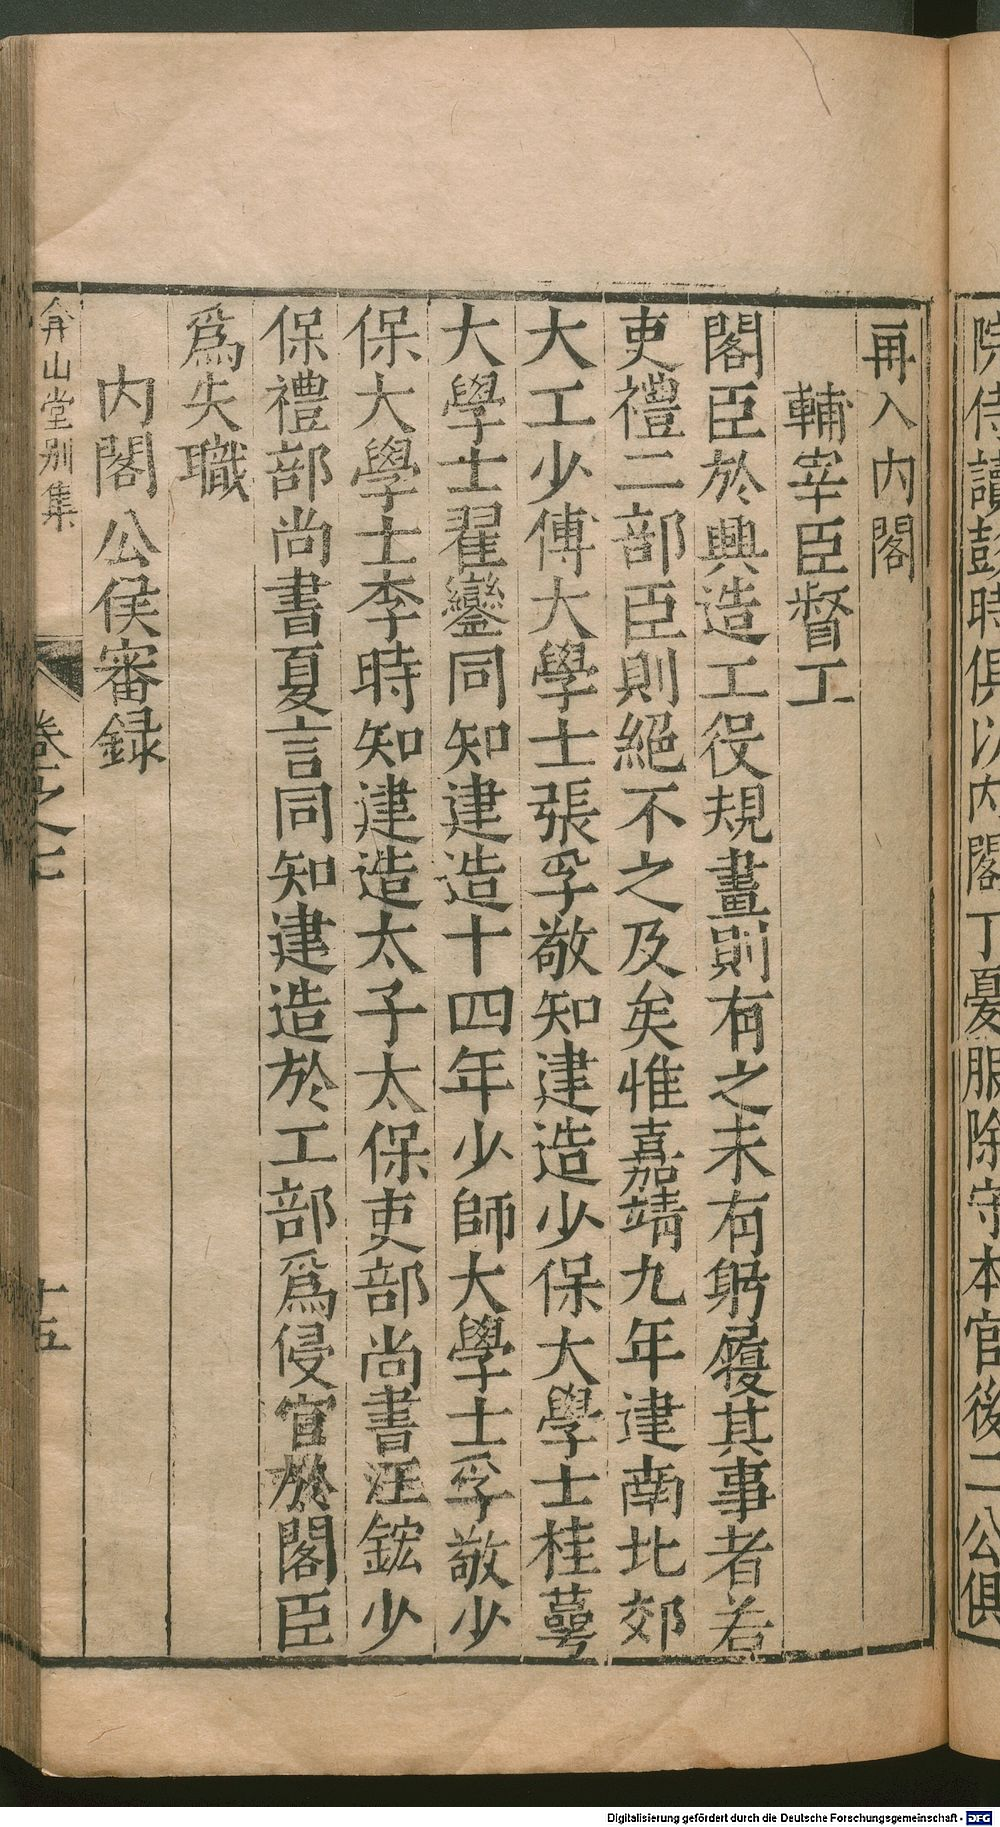 院侍讀彭時俱以內閣丁憂服除守本官後二公俱
再入內閣
輔宰臣督工
閣臣於興造工役規畫則有之未有躬履其事者若
吏禮二部臣則絕不之及矣惟嘉靖九年建南北郊
大工少傅大學士張孚敬知建造少保大學士桂萼
大學士翟鑾同知建造十四年少師大學士孚敬少
保大學士李時知建造太子太保吏部尚書汪鋐少
保禮部尚書夏言同知建造於工部爲侵官於閣臣
爲失職
內閣公侯審録
弇山堂別集
卷之七
十五
Digitalisierung gefördert durch die Deutsche Forschungsgemeinschaft - DFG